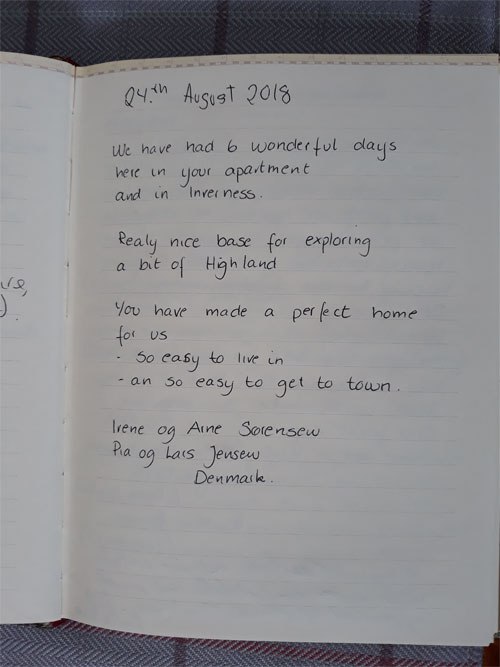 24.th August 2018
We have had 6 wonderful days
here in your apartment
and in Inverness.
Realy nice base for exploring
a bit of Highland
You have made a perfect home
for us
- so easy to live in
- an so easy to get to town.
Irene og Arne Sørensen
Pia og Lars Jensen
Denmark.